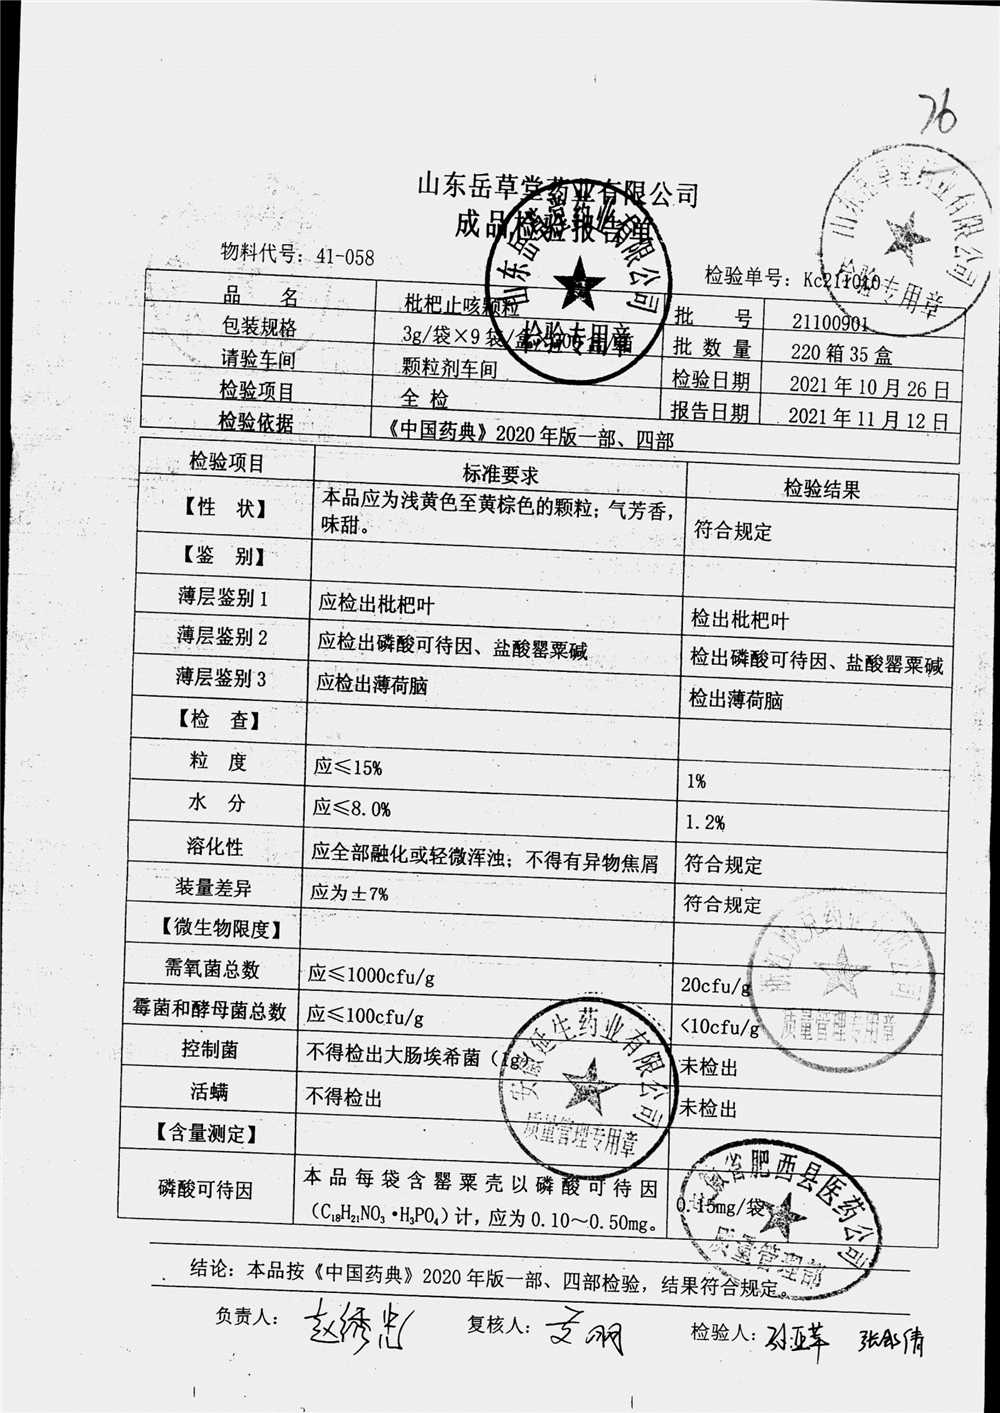 76
山东岳草堂药业有限公司
成品检验报告单
物料代号：41-058
检验单号：Kc211010
品 名 枇杷止咳颗粒 批 号 21100901
包装规格 3g/袋×9袋/盒 批数量 220箱35盒
请验车间 颗粒剂车间 检验日期 2021年10月26日
检验项目 全检 报告日期 2021年11月12日
检验依据 《中国药典》2020年版一部、四部
检验项目 标准要求 检验结果
【性 状】 本品应为浅黄色至黄棕色的颗粒；气芳香， 符合规定
味甜。
【鉴 别】
薄层鉴别1 应检出枇杷叶 检出枇杷叶
薄层鉴别2 应检出磷酸可待因、盐酸罂粟碱 检出磷酸可待因、盐酸罂粟碱
薄层鉴别3 应检出薄荷脑 检出薄荷脑
【检 查】
粒 度 应≤15% 1%
水 分 应≤8.0% 1.2%
溶化性 应全部融化或轻微浑浊；不得有异物焦屑 符合规定
装量差异 应为±7% 符合规定
【微生物限度】
需氧菌总数 应≤1000cfu/g 20cfu/g
霉菌和酵母菌总数 应≤100cfu/g <10cfu/g
控制菌 不得检出大肠埃希菌（1g 未检出
活螨 不得检出 未检出
【含量测定】
磷酸可待因 本品每袋含罂粟壳以磷酸可待因 0.15mg/袋
（C₁₈H₂₁NO₃·H₃PO₄）计，应为0.10～0.50mg。
结论：本品按《中国药典》2020年版一部、四部检验，结果符合规定。
负责人： 复核人： 检验人：
山东岳草堂药业有限公司
检验专用章
山东岳草堂药业有限公司
检验专用章
质量管理专用章
安徽延生药业有限公司
质量管理专用章
安徽省肥西县医药公司
质量管理部